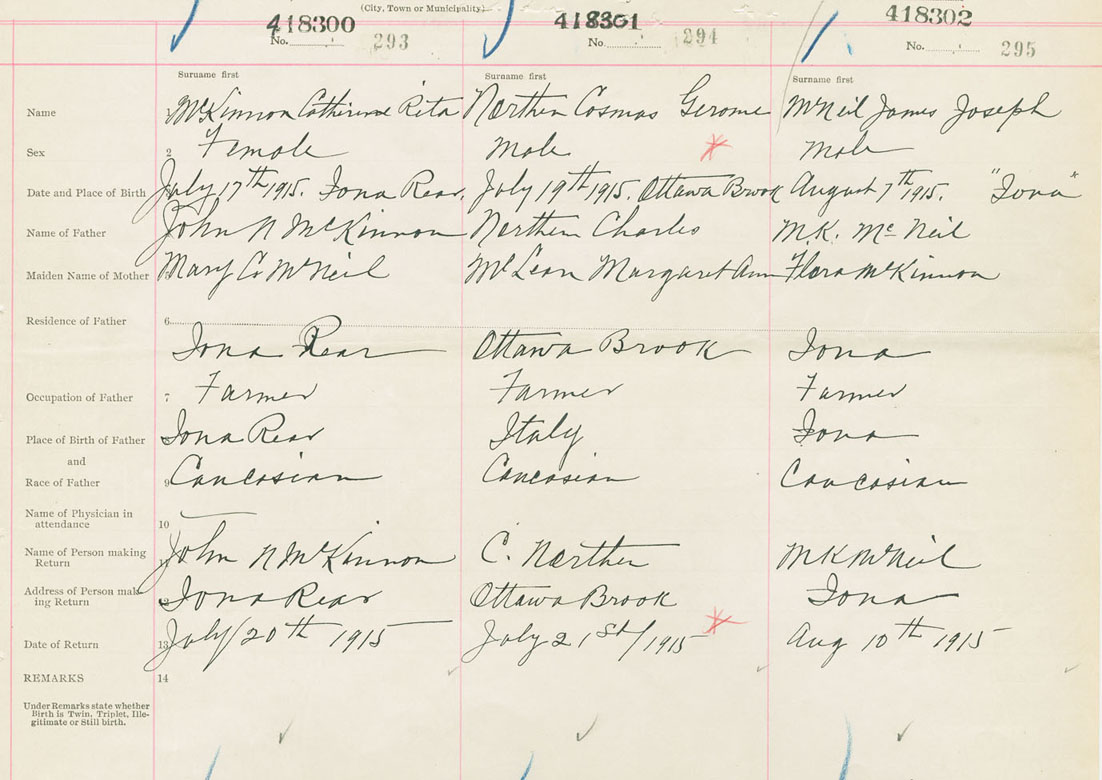 (City, Town or Municipality)
418300 418301 418302
No. 293 No. 294 No. 295
Surname first Surname first Surname first
Name 1 McKinnon Catherine Rita Northen Cosmas Gerome McNeil James Joseph
Sex 2 Female Male Male
Date and Place of Birth July 17th 1915. Iona Rear. July 19th 1915. Ottawa Brook August 7th 1915. "Iona"
Name of Father John N McKinnon Northen Charles M.K. McNeil
Maiden Name of Mother Mary C McNeil McLean Margaret Ann Flora McKinnon
Residence of Father 6
Iona Rear Ottawa Brook Iona
Occupation of Father 7 Farmer Farmer Farmer
Place of Birth of Father Iona Rear Italy Iona
and
Race of Father 9 Caucasian Caucasian Caucasian
Name of Physician in
attendance 10
Name of Person making
Return 11 John N McKinnon C. Northen M K McNeil
Address of Person mak-
ing Return 12 Iona Rear Ottawa Brook Iona
Date of Return 13 July 20th 1915 July 21st/1915 Aug 10th 1915
REMARKS 14
Under Remarks state whether
Birth is Twin, Triplet, Ille-
gitimate or Still birth.